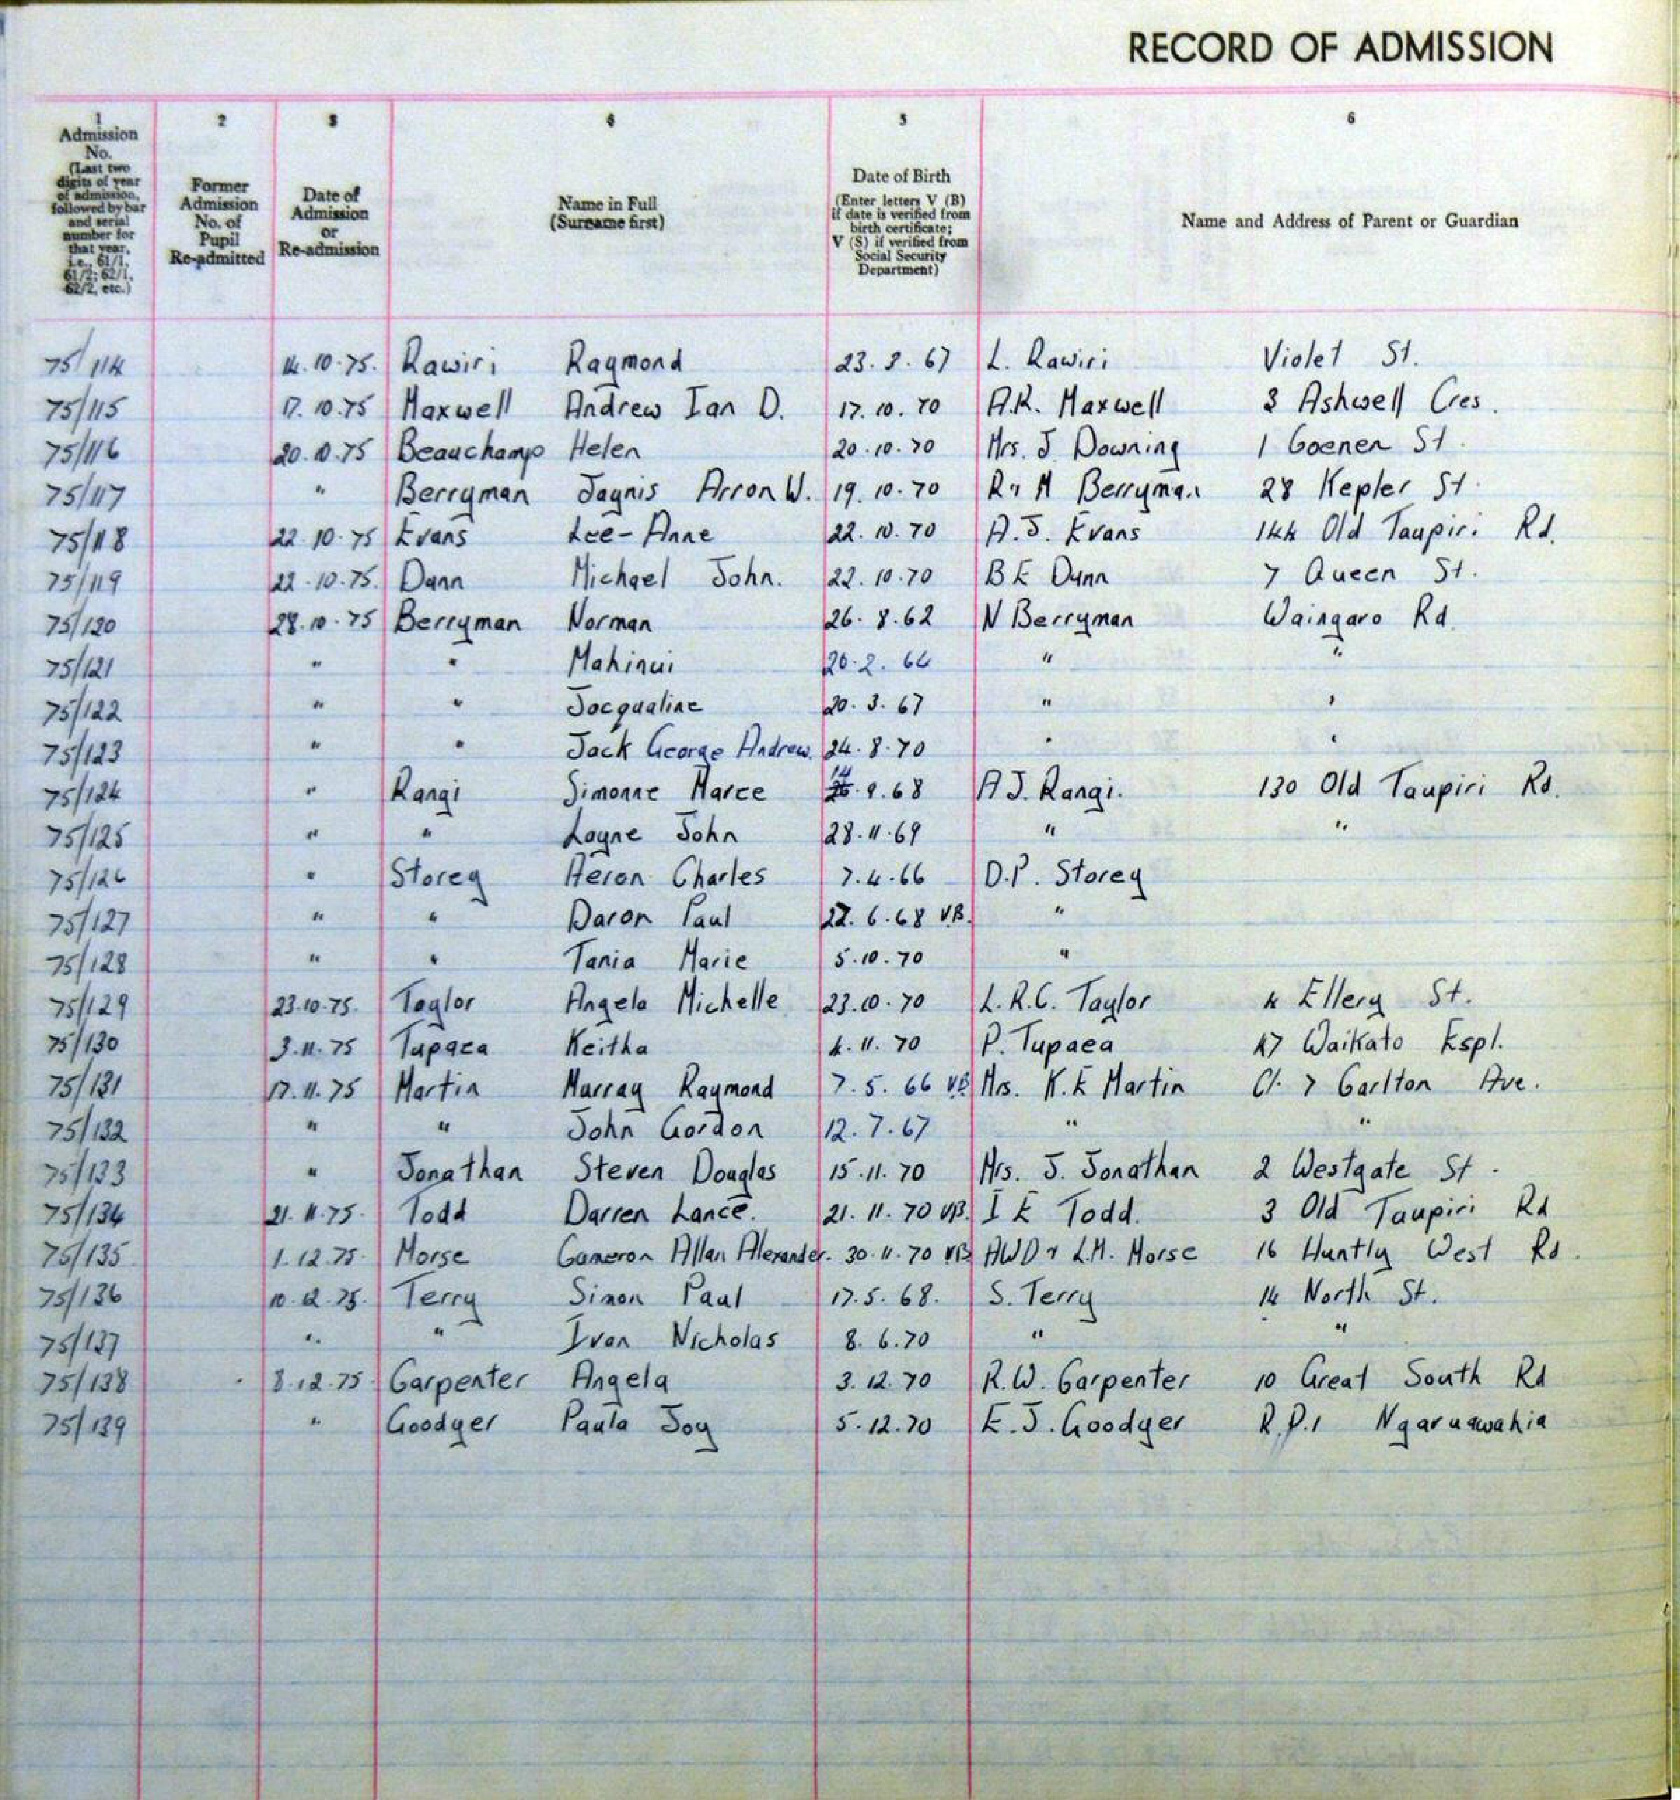 RECORD OF ADMISSION
1 2 3 4 5 6
Admission No. (Last two digits of year of admission, followed by bar and serial number for that year, i.e., 61/1, 61/2; 62/1, 62/2, etc.)
Former Admission No. of Pupil Re-admitted
Date of Admission or Re-admission
Name in Full (Surname first)
Date of Birth (Enter letters V (B) if date is verified from birth certificate; V (S) if verified from Social Security Department)
Name and Address of Parent or Guardian
75/114 14.10.75. Rawiri Raymond 23. 67 L. Rawiri Violet St.
75/115 17.10.75 Maxwell Andrew Ian D. 17.10.70 A.R. Maxwell 3 Ashwell Cres.
75/116 20.10.75 Beauchamp Helen 20.10.70 Mrs. J Downing 1 St.
75/117 " Berryman Jaynis Arron W. 19.10.70 R & M Berryman 28 Kepler St.
75/118 22.10.75 Evans Lee-Anne 22.10.70 A.J. Evans 144 Old Taupiri Rd.
75/119 22.10.75. Dunn Michael John. 22.10.70 B E Dunn 7 Queen St.
75/120 28.10.75 Berryman Norman 26.8.62 N Berryman Waingaro Rd.
75/121 " " Mahinui 20.2.64 " "
75/122 " " Jacqualine 20.3.67 " "
75/123 " " Jack George Andrew 24.8.70 " "
75/124 " Rangi Simonne Maree 14.9.68 A J. Rangi. 130 Old Taupiri Rd.
75/125 " " Layne John 28.11.69 " "
75/126 " Storey Aeron Charles 7.4.66 D.P. Storey
75/127 " " Daron Paul 22.6.68 V.B. "
75/128 " " Tania Marie 5.10.70 "
75/129 23.10.75. Taylor Angela Michelle 23.10.70 L.R.C. Taylor 4 Ellery St.
75/130 3.11.75 Tupaea Keitha 4.11.70 P. Tupaea 47 Waikato Espl.
75/131 17.11.75 Martin Murray Raymond 7.5.66 VB Mrs. K.E Martin C/- 7 Carlton Ave.
75/132 " " John Gordon 12.7.67 " "
75/133 " Jonathan Steven Douglas 15.11.70 Mrs. J. Jonathan 2 Westgate St.
75/134 21.11.75. Todd Darren Lance. 21.11.70 VB. I E Todd. 3 Old Taupiri Rd
75/135 1.12.75. Morse Cameron Allan Alexander. 30.11.70 VB AWD & L.M. Morse 16 Huntly West Rd.
75/136 10.12.75. Terry Simon Paul 17.5.68. S. Terry 14 North St.
75/137 " " Ivan Nicholas 8.6.70 " "
75/138 8.12.75 Carpenter Angela 3.12.70 R.W. Carpenter 10 Great South Rd
75/139 " Goodger Paula Joy 5.12.70 E.J. Goodger R.D.1 Ngaruawahia